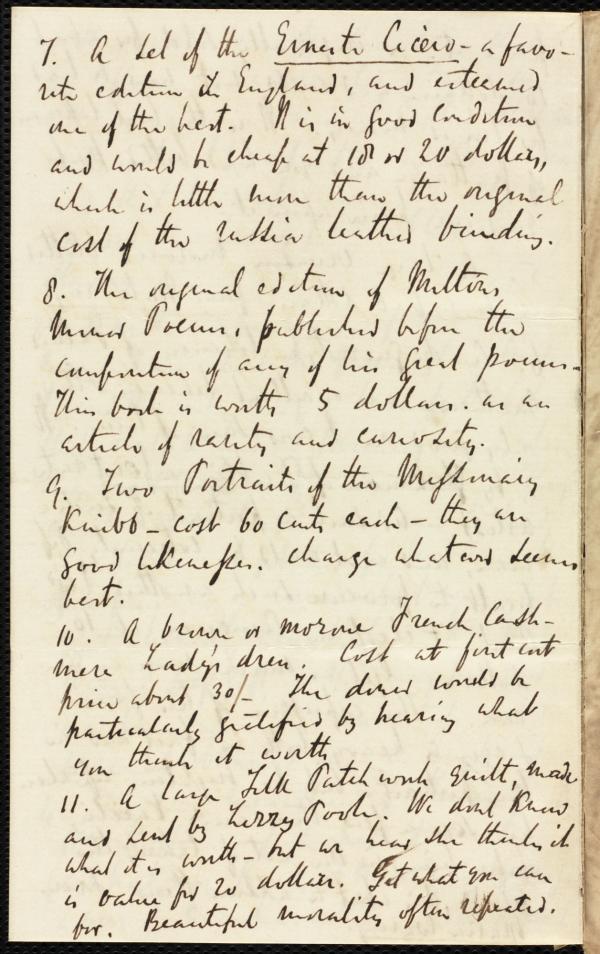 7. A set of the Ernesti Cicero - a favo-
rite edition in England, and esteemed
one of the best. It is in good condition
and would be cheap at 18 or 20 dollars,
which is little more than the original
cost of the russia leather binding.
8. The original edition of Miltons
Minor Poems, published before the
composition of any of his great poems.
This book is worth 5 dollars. as an
article of rarity and curiosity.
9. Two Portraits of the Missionary
Knibb - cost 60 cents each - they are
good likenesses. charge whatever seems
best.
10. A brown or morone French Cash-
mere Lady's dress. Cost at first cost
price about 30/- The donor would be
particularly gratified by hearing what
you think it worth
11. A large Silk Patch work quilt, made
and sent by Poole. We dont know
what it is worth - but we hear she thinks it
is value for 20 dollars. Get what you can
for. Beautiful morality often repeated.